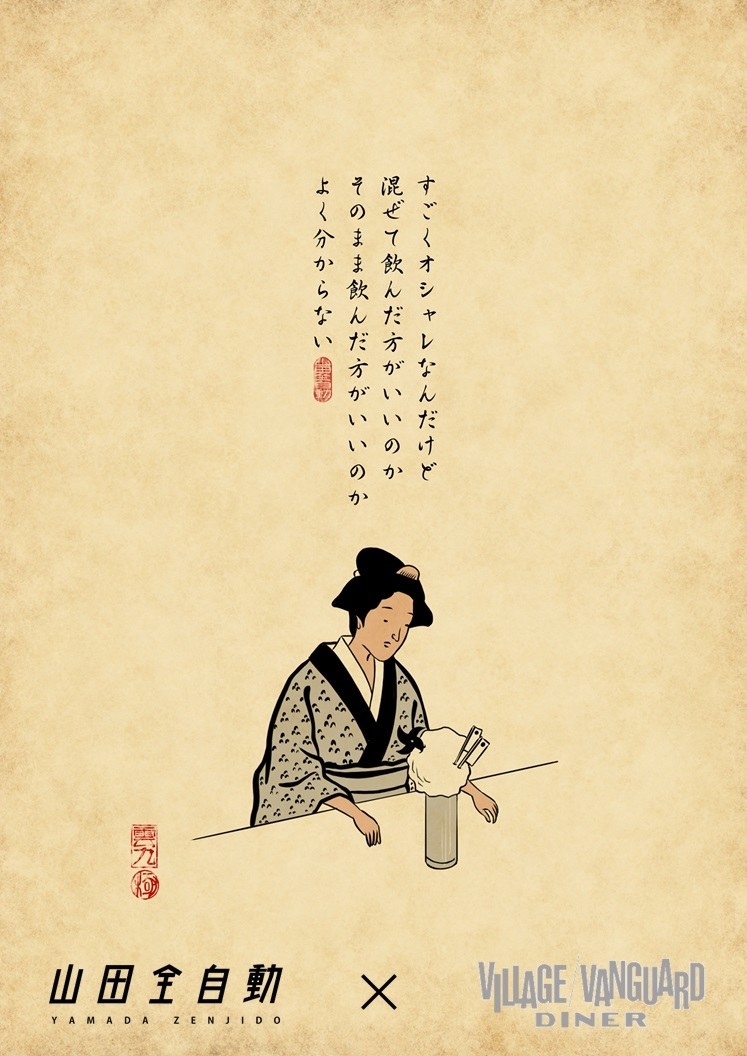 すごくオシャレなんだけど
混ぜて飲んだ方がいいのか
そのまま飲んだ方がいいのか
よく分からない
山田全自動
YAMADA ZENJIDO
×
VILLAGE VANGUARD
DINER